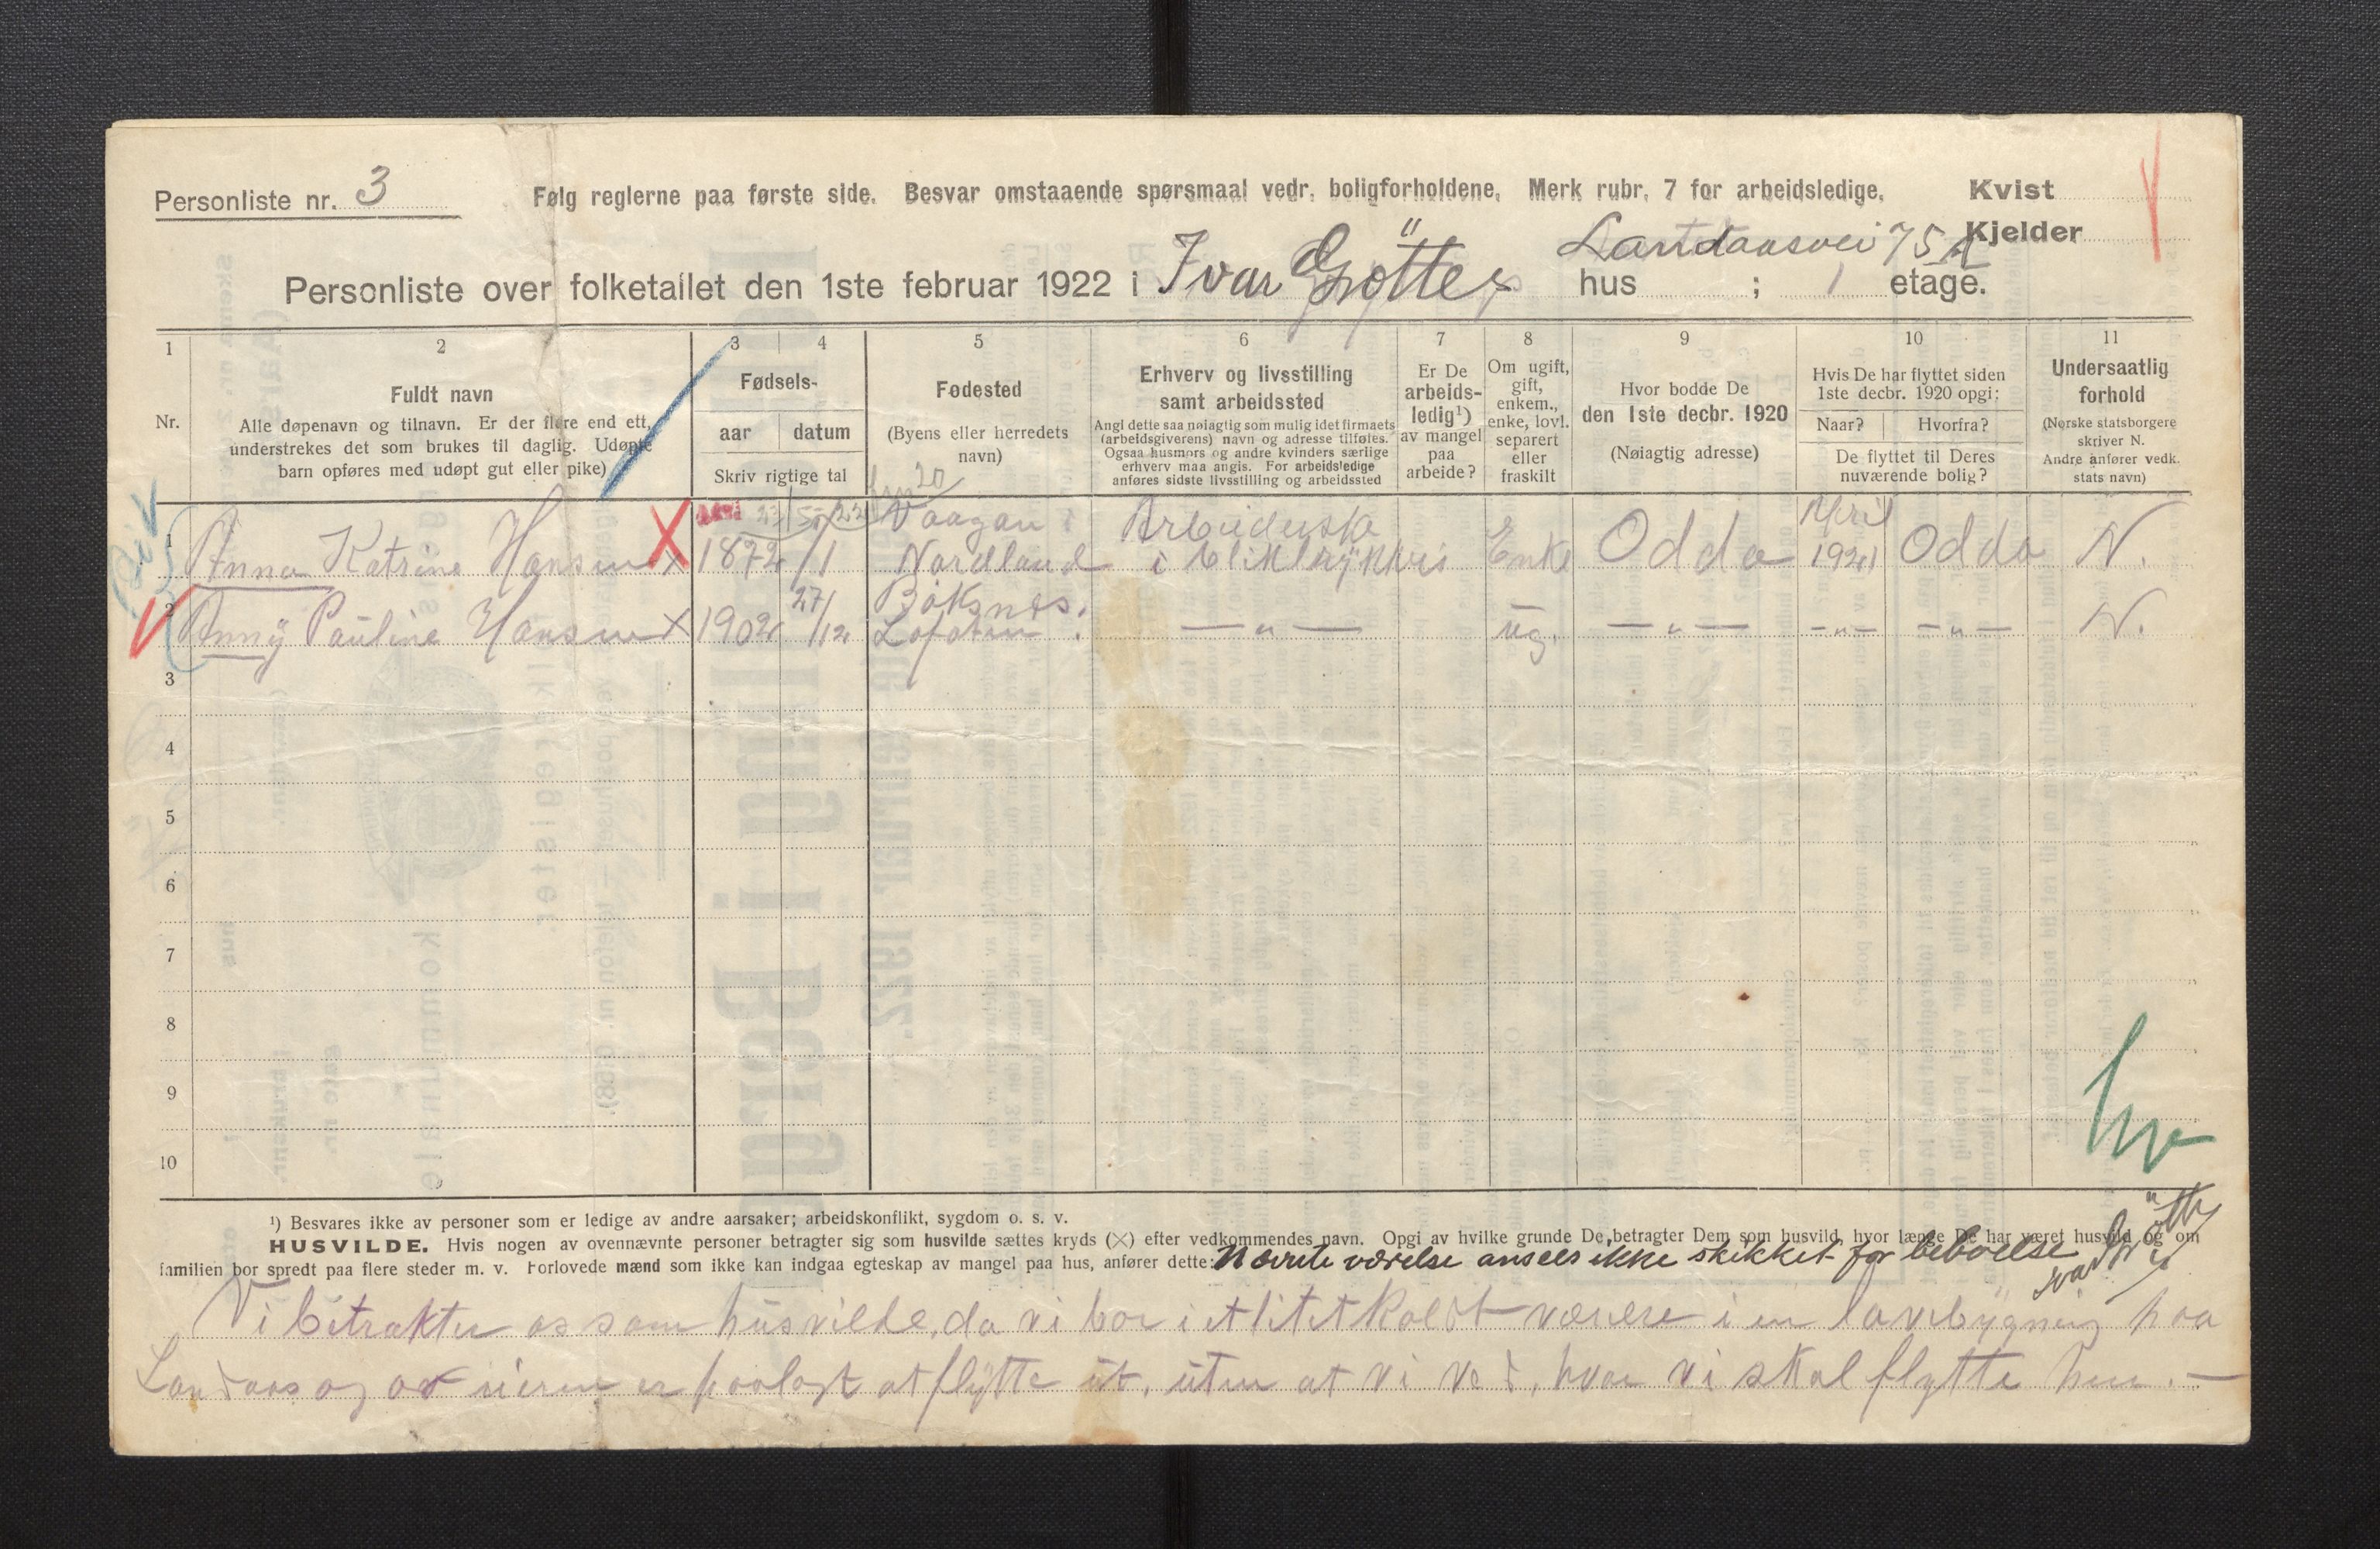 Personliste nr. 3 Følg reglerne paa første side. Besvar omstaaende spørsmaal vedr. boligforholdene. Merk rubr. 7 for arbeidsledige. Kvist
Kjelder
Landaasvei 75 A
Personliste over folketallet den 1ste februar 1922 i Ivar Gröttes hus ; 1 etage.
1 2 3 4 5 6 7 8 9 10 11
Nr.
Fuldt navn
Alle døpenavn og tilnavn. Er der flere end ett,
understrekes det som brukes til daglig. Udøpte
barn opføres med udøpt gut eller pike)
Fødsels-
aar datum
Skriv rigtige tal
Fødested
(Byens eller herredets
navn)
Erhverv og livsstilling
samt arbeidssted
Angi dette saa nøiagtig som mulig idet firmaets
(arbeidsgiverens) navn og adresse tilføies.
Ogsaa husmors og andre kvinders særlige
erhverv maa angis. For arbeidsledige
anføres sidste livsstilling og arbeidssted
Er De
arbeids-
ledig¹)
av mangel
paa
arbeide?
Om ugift,
gift,
enkem.,
enke, lovl.
separert
eller
fraskilt
Hvor bodde De
den 1ste decbr. 1920
(Nøiagtig adresse)
Hvis De har flyttet siden
1ste decbr. 1920 opgi:
Naar? Hvorfra?
De flyttet til Deres
nuværende bolig?
Undersaatlig
forhold
(Norske statsborgere
skriver N.
Andre anfører vedk.
stats navn)
20
Vaagan Arbeiderske April
1 Anna Katrine Hansen X 1872 1/1 Nordland i blikktrykkeri Enke Odda 1921 Odda N.
Boksnes.
2 Anny Pauline Hansen X 1902 27/12 Lofoten. — " — ug. — " — — " — — " — N.
3
4
5
6
7
8
9
10
¹) Besvares ikke av personer som er ledige av andre aarsaker; arbeidskonflikt, sygdom o. s. v.
HUSVILDE. Hvis nogen av ovennævnte personer betragter sig som husvilde sættes kryds (X) efter vedkommendes navn. Opgi av hvilke grunde De betragter Dem som husvild, hvor længe De har været husvild og om
familien bor spredt paa flere steder m. v. Forlovede mænd som ikke kan indgaa egteskap av mangel paa hus, anfører dette: Nævnte værelse ansees ikke skikket for beboelse
Ivar Grötte
Vi betrakter os som husvilde, da vi bor i et litet koldt værelse i en lavebygning paa
Landaas og av eieren er paalagt at flytte ut, uten at vi ved, hvor vi skal flytte hen. —